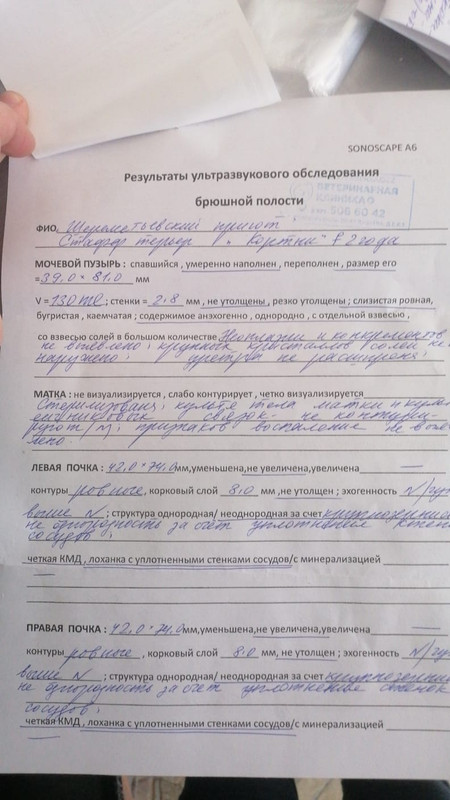 SONOSCAPE A6
Результаты ультразвукового обследования
брюшной полости
ВЕТЕРИНАРНАЯ
КЛИНИКА
508 60 42
ФИО Шереметьевский приют
Стафф терьер "Кортни" f 2 года
МОЧЕВОЙ ПУЗЫРЬ : спавшийся , умеренно наполнен , переполнен , размер его
=39,0 * 81,0 мм
V = 130 ml ; стенки = 2,8 мм , не утолщены , резко утолщены ; слизистая ровная,
бугристая , каемчатая ; содержимое анэхогенно , однородно , с отдельной взвесью ,
со взвесью солей в большом количестве Неоплазии и конкрементов
не выявлено ; крупных кристаллов солей не
наружено ; уретра не расширена ;
МАТКА : не визуализируется , слабо контурирует , четко визуализируется
Стерилизована ; культя тела матки и культи
яичниковых связок - не контури-
руют /N/ ; признаков воспаления не выяв
лено .
ЛЕВАЯ ПОЧКА : 42,0 * 74,0 мм,уменьшена,не увеличена,увеличена —
контуры ровные , корковый слой 8,0 мм ,не утолщен ; эхогенность N/
выше N ; структура однородная/ неоднородная за счет
не однородность за счет уплотнения стенок
сосудов ;
четкая КМД , лоханка с уплотненными стенками сосудов/с минерализацией
—
ПРАВАЯ ПОЧКА : 42,0 * 74,0 мм,уменьшена,не увеличена,увеличена —
контуры ровные , корковый слой 8,0 мм , не утолщен ; эхогенность N/
выше N ; структура однородная/ неоднородная за счет
не однородность за счет уплотнения стенок
сосудов ;
четкая КМД , лоханка с уплотненными стенками сосудов/с минерализацией
—